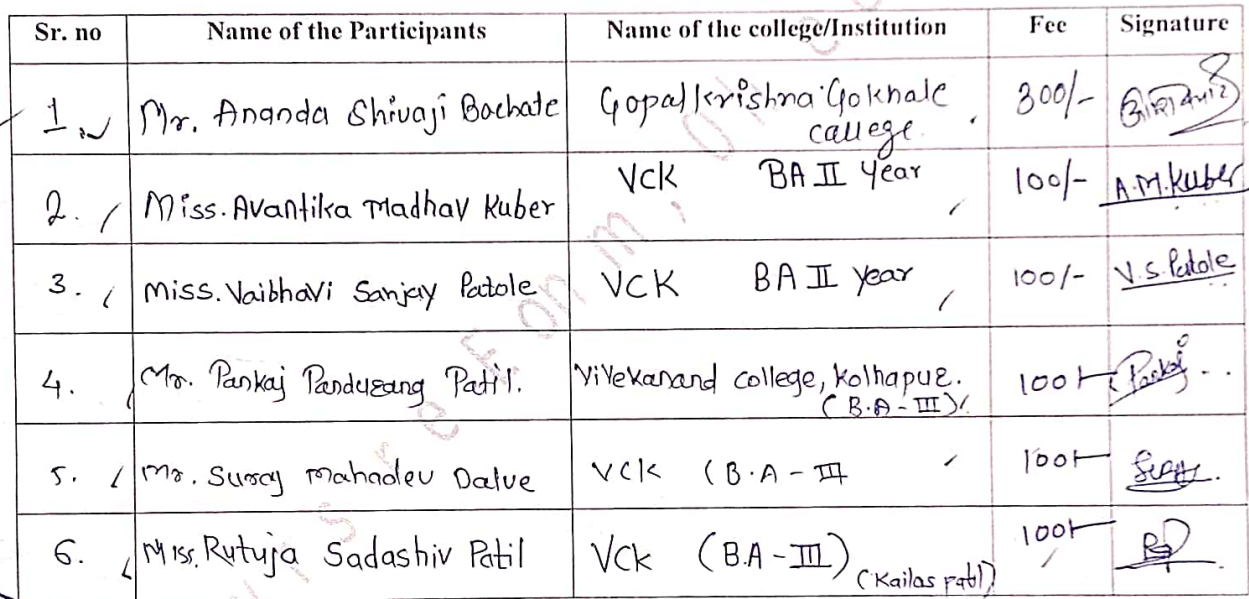 Sr. no Name of the Participants Name of the college/Institution Fee Signature
1. Mr. Ananda Shivaji Bachate Gopal Krishna Gokhale 300/-
college.
2. Miss. Avantika Madhav Kuber VCK BA II Year 100/- A.M.Kuber
3. Miss. Vaibhavi Sanjay Patole VCK BA II year 100/- V.S.Patole
4. Mr. Pankaj Pandurang Patil. Vivekanand college, Kolhapur. 100/- Pankaj
(B.A-III)
5. Mr. Suraj Mahadev Dalve VCK (B.A-III 100/-
6. Miss. Rutuja Sadashiv Patil VCK (B.A-III) 100/-
(Kailas patil)